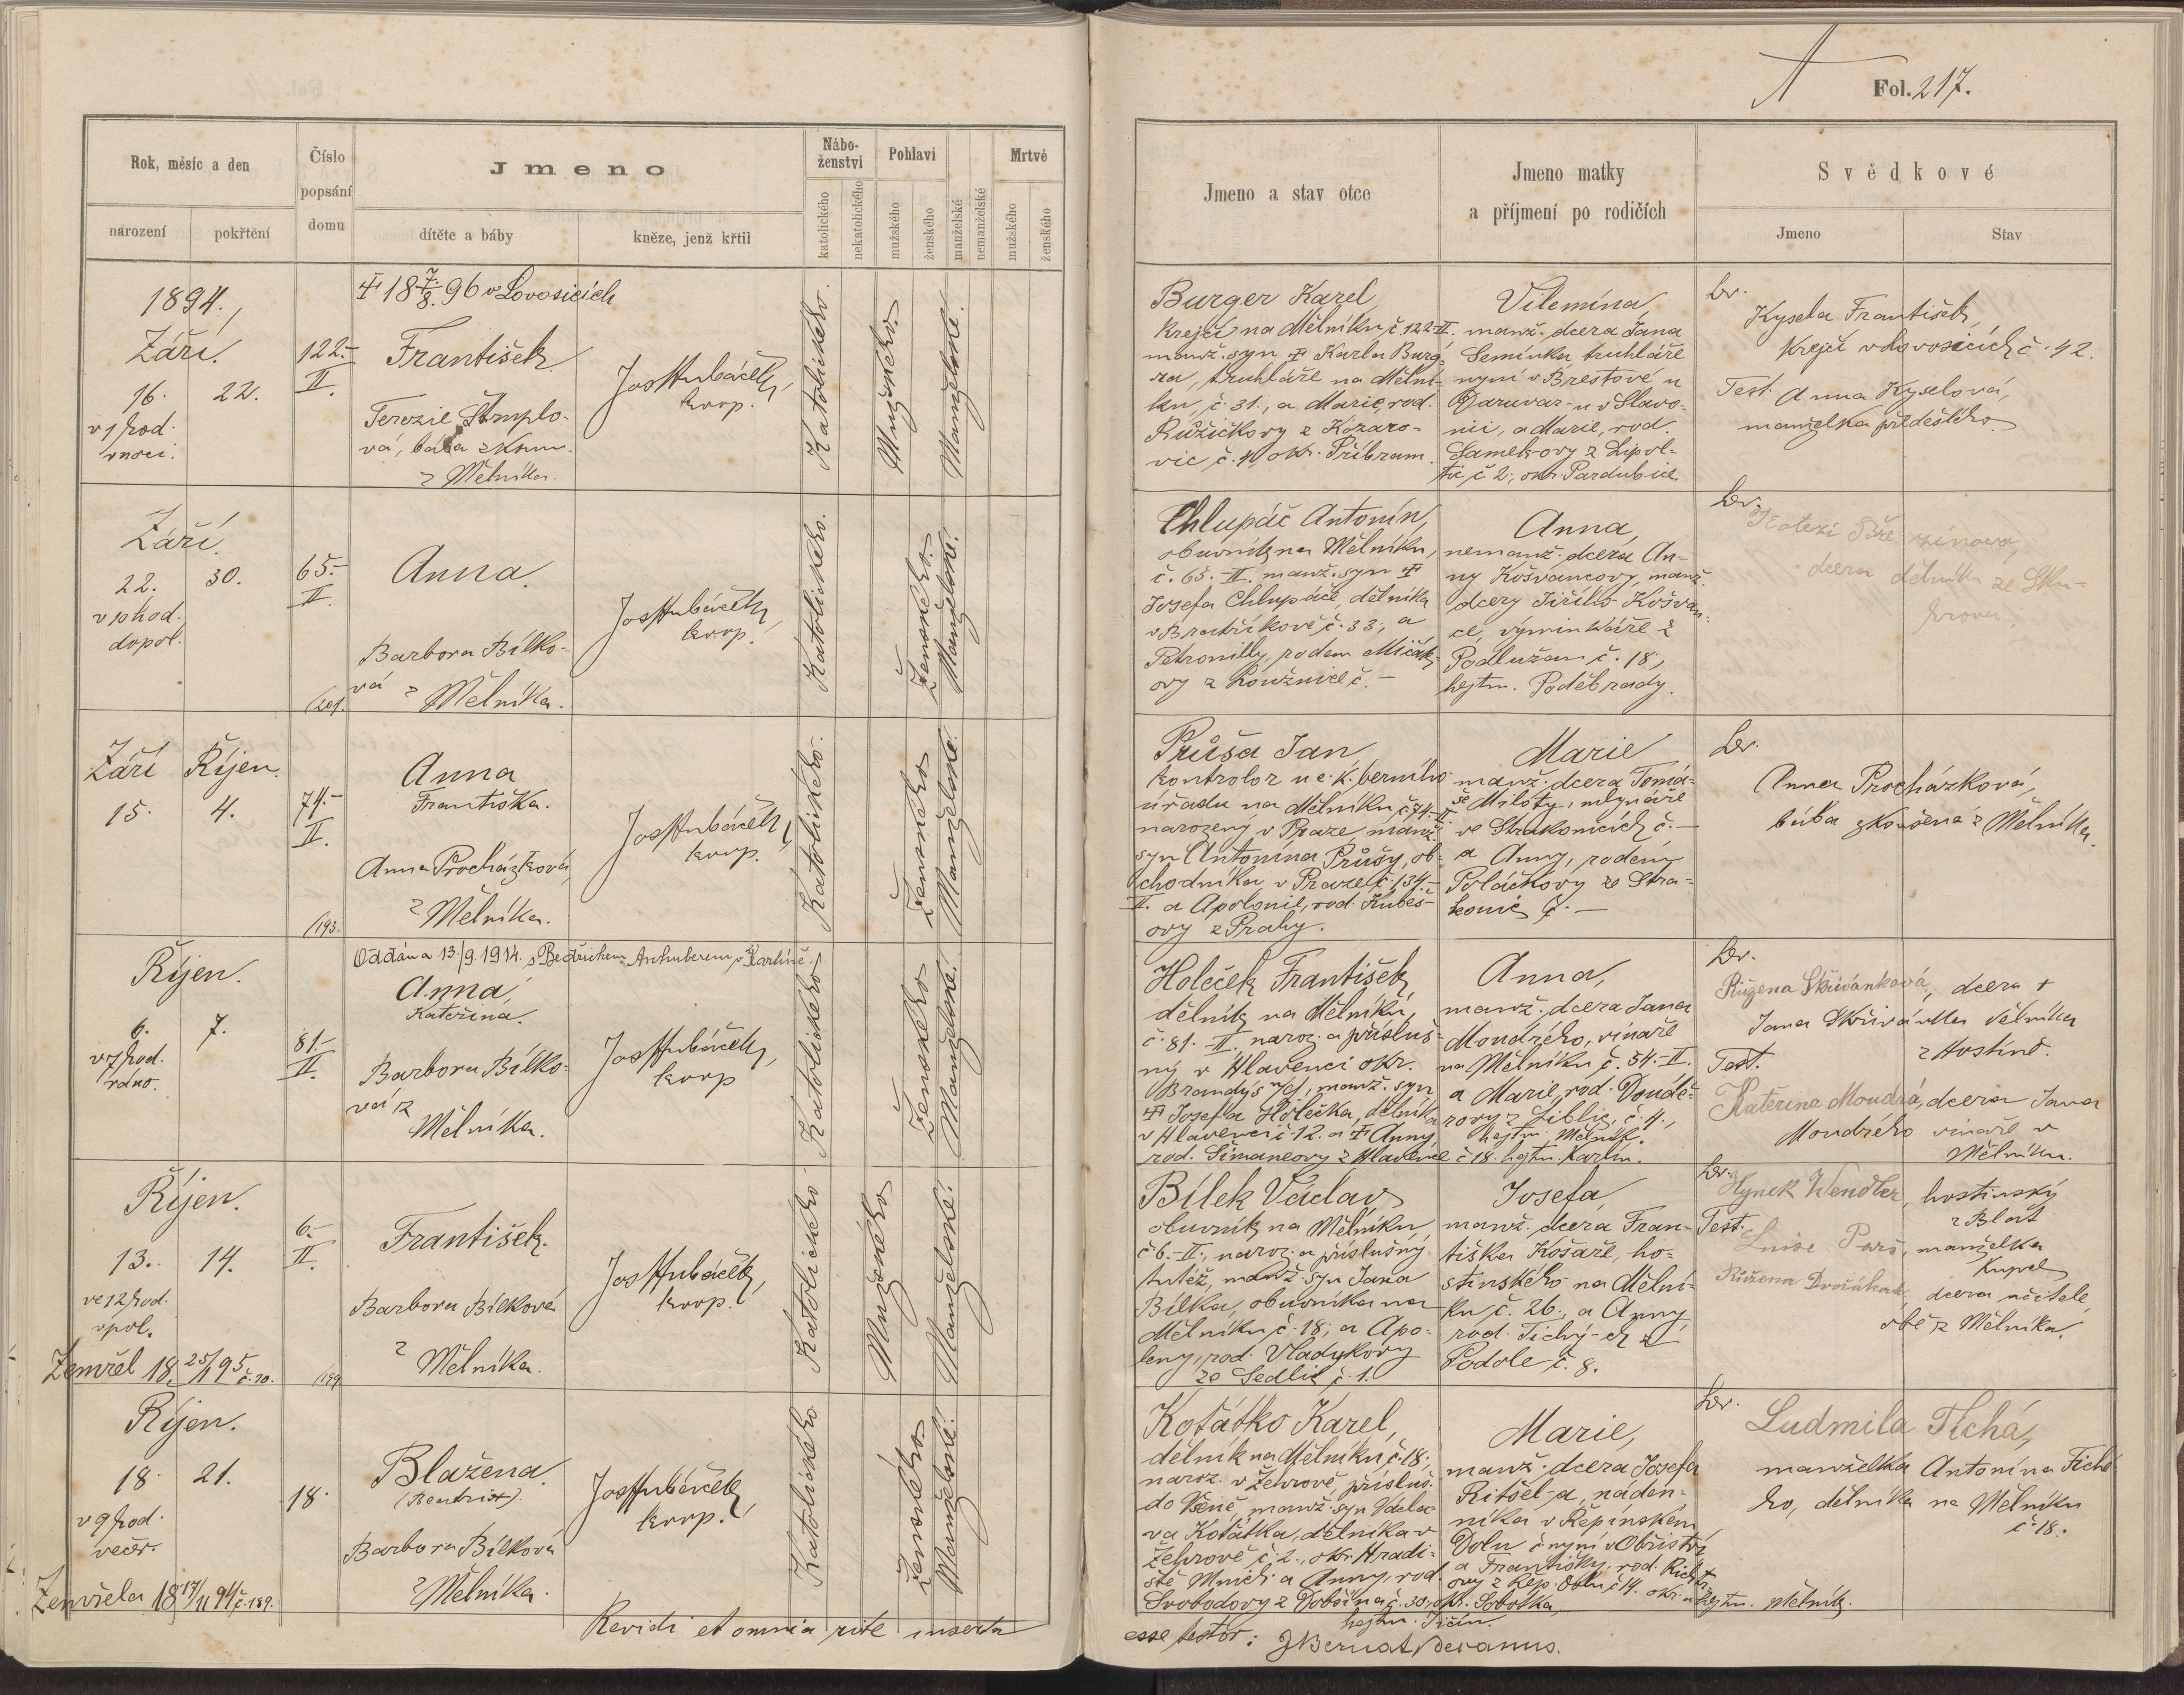 Rok, měsíc a den
narození
pokřtění
Číslo
popsání
domu
Jmeno
dítěte a báby
kněze, jenž křtil
Nábo-
ženství
katolického
nekatolického
Pohlaví
mužského
ženského
manželské
nemanželské
Mrtvé
mužského
ženského
1894.,
Září.
16.
22.
v 1 hod.
v noci.
122.-
II.
18 7./8. 96 v Lovosicích
František
Terezie
vá, bába zkouš.
z Mělníka.
Jos Hubáček,
koop.
Katolického.
Mužského.
Manželské.
Září.
22.
30.
v hod.
dopol.
65.-
II.
(201.
Anna.
Barbora Bílko-
vá z Mělníka.
Jos Hubáček,
koop.
Katolického.
Ženského.
Manželské.
Září
Říjen.
15.
4.
74.-
II.
(193.
Anna
Františka.
Anna Procházková,
z Mělníka.
Jos Hubáček,
koop.
Katolického.
Ženského
Manželské.
Říjen.
6.
7.
v 7 hod.
ráno.
81.-
II.
Oddána 13./9. 1914. s Bedřichem v Karlíně.
Anna,
Kateřina.
Barbora Bílko-
vá z
Mělníka.
Jos Hubáček,
koop
Katolického
Ženského
Manželské.
Říjen.
13.
14.
ve 12 hod.
v pol.
Zemřel 18 25/1 95 č. 20.
6.-
II.
(199
František.
Barbora Bílková
z Mělníka.
Jos Hubáček,
koop.
Katolického
Mužského
Manželské.
Říjen.
18.
21.
v 9 hod.
večer.
Zemřela 18 17/11 94 č. 189.
18.
Blažena.
(Beatrix).
Barbora Bílková
z Mělníka.
Jos Hubáček,
koop.
Katolického
Ženského
Manželské.
Revidi et omnia rite inserta
Fol. 217.
Jmeno a stav otce
Jmeno matky
a příjmení po rodičích
Svědkové
Jmeno
Stav
Burger Karel
krejčí na Mělníku č. 122-II.
manž. syn Karla Burge-
ra, truhláře na Mělní-
ku, č. 31., a Marie, rod.
Růžičkovy z Kozaro-
vic č. 4, okr. Příbram.
Vilemína,
manž. dcera Jana
Semínka truhláře
nyní v Brestově u
Daruvar-u v Slavo-
nii, a Marie, rod.
Samekovy z Lipol-
tic č. 2., okr. Pardubice
Kysela František,
krejčí v Lovosicích č. 42.
Test. Anna Kyselová,
manželka předešlého
Chlupáč Antonín,
obuvník na Mělníku,
č. 65.-II. manž. syn
Josefa Chlupáče, dělníka
v Bratříkově č. 33., a
Petronilly, rodem
ovy z Loužnice č. -
Anna,
nemanž. dcera An-
ny Košvancovy, manž.
dcery Jiřího Košvan-
ce, výminkáře z
Podlužan č. 18.,
hejtm. Poděbrady.
dcera dělníka ze Sku-
hrova,
Průša Jan
kontrolor u c. k. berního
úřadu na Mělníku č. 74-II.
narozený v Praze, manž.
syn Antonína Průšy, ob-
chodníka v Praze č. 134.-
II. a Apolonie, rod. Kubeš-
ovy z Prahy.
Marie
manž. dcera Tomá-
še Miloty, mlynáře
ve Strakonicích č. -
a Anny, rodem
Poláčkovy ze Stra-
konic č. -
Anna Procházková,
bába zkoušená z Mělníka.
Holeček František
dělník na Mělníku,
č. 81.-II. naroz. a přísluš-
ný v Hlavenci okr.
Brandýs n/l, manž. syn
Josefa Holečka, dělníka
v Hlavenci č. 12. a Anny,
rod. Šimaneovy z Hlavence č 18. hejtm. Karlín.
Anna,
manž. dcera Jana
Moudrého, vinaře
na Mělníku č. 54.-II.
a Marie, rod. Douděr-
rovy z Liblic č. 4.,
hejtm. Mělník.
Růžena Skřivánková, dcera
Jana Skřivánka dělníka
z Hostíně.
Test.
Kateřina Moudrá, dcera Jana
Moudrého vinaře v
Mělníku.
Bílek Václav
obuvník na Mělníku,
č 6.-II., naroz. a příslušný
tutéž, manž. syn Jana
Bílka, obuvníka na
Mělníku č. 18., a Apo-
leny, rod. Vladykovy
ze Sedlic č. 1.
Josefa,
manž. dcera Fran-
tiška Košaře, ho-
stinského na Mělní-
ku č. 26., a Anny,
rod. Tichý-ch z
Podole č. 8.
Hynek Wendler, hostinský
z Blat
Test.
Luise, manželka
Kupce
Růžena Dvořáková, dcera učitele
obě z Mělníka.
Koťátko Karel,
dělník na Mělníku č. 18.,
naroz. v Žehrově, přísluš.
do Všeně, manž. syn Václa-
va Koťátka, dělníka v
Žehrově č. 2., okr. Hradi-
ště Mnich. a Anny, rod.
Svobodovy z Dobšína č. 30., okr. Sobotka,
hejtm. Jičín.
Marie,
manž. dcera Josefa
Ritšel-a, náden-
níka v Řepínském
Dolu č. nyní v Obříství
a Františky, rod. Richtr-
ovy z Řep. Dolu č 14. okr. a hejtm. Mělník.
Ludmila Tichá,
manželka Antonína Tiché-
ho, dělníka na Mělníku
č. 18.
esse testor: J Bernat Decanus.